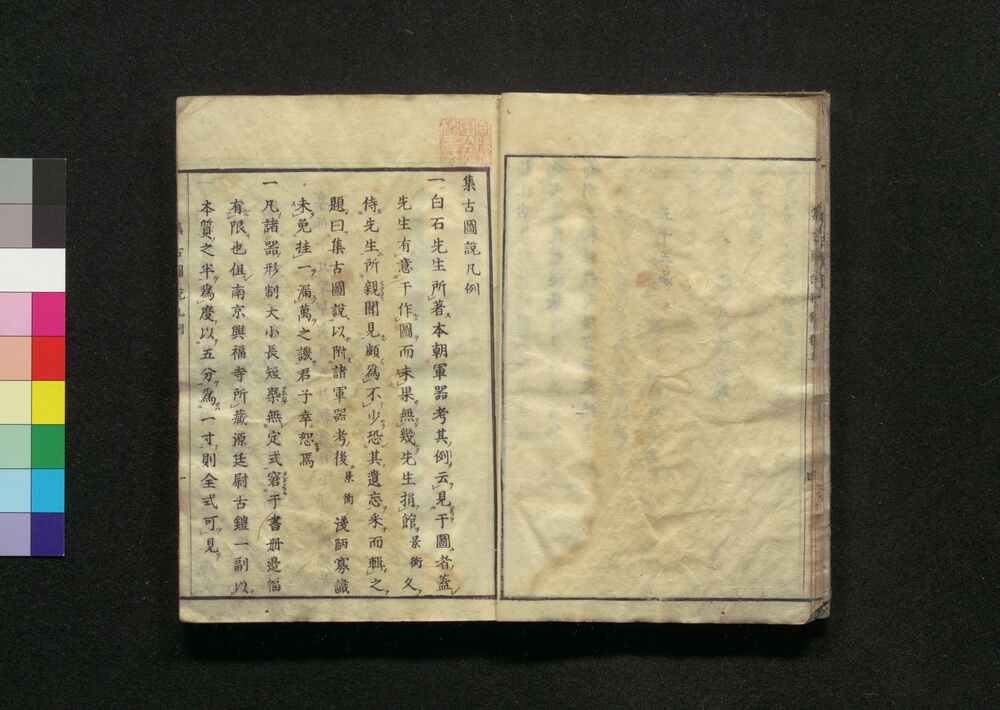 集古圖說凡例
一白石先生所著本朝軍器考其例云見于圖者蓋
先生有意于作圖而未果無幾先生捐館景衡久
侍先生所親聞見頗為不少恐其遺忘采而輯之
題曰集古圖說以附諸軍器考後景衡淺陋寡識
未免挂一漏萬之譏君子幸恕焉
一凡諸器形制大小長短槩無定式窘于書册邊幅
有限也但南京興福寺所藏源廷尉古鎧一副以
本質之半為度以五分為一寸則全式可見
集古圖說凡例
一